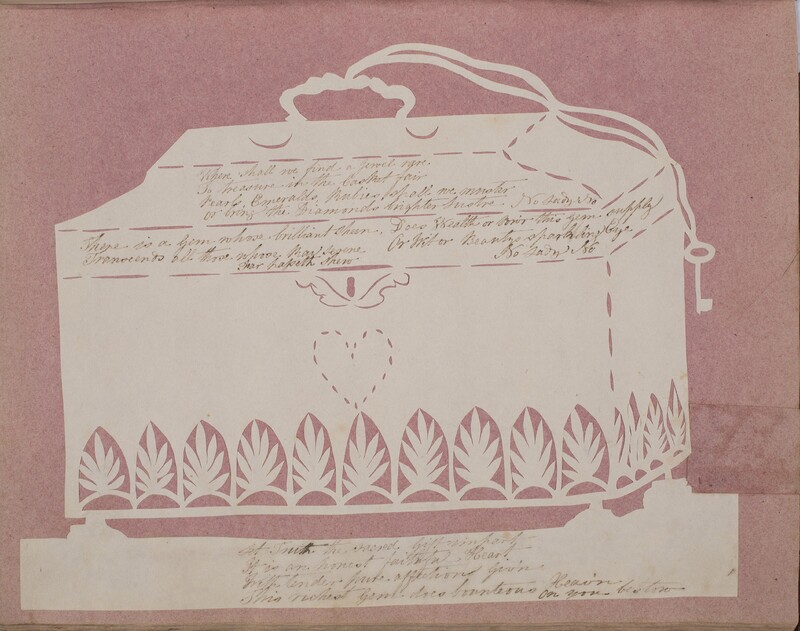 Where shall we find a Jewel rare
To treasure in the Casket fair
Pearls, Emeralds, Rubies, shall we muster
or bring the Diamonds brighter lustre. No Lady No
There is a Gem whose brilliant Sheen
Transcends all those whose Ray serene
Star
Does Wealth or Pow'r this Gem supply
Or Wit or Beauty's sparkling Eye
No Lady No
Let Truth the sacred Gift impart
It is an honest faithful Heart
With tender pure affections Giv'n
This richest Gem does bounteous Heav'n
on you bestow